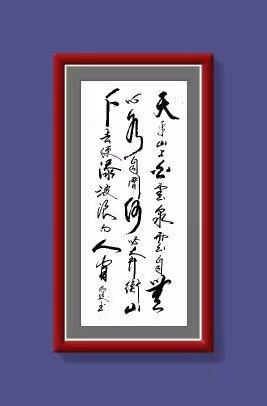 天平山上白雲泉雲自無
心水自閒何必奔衝山
下去更添波浪向人間